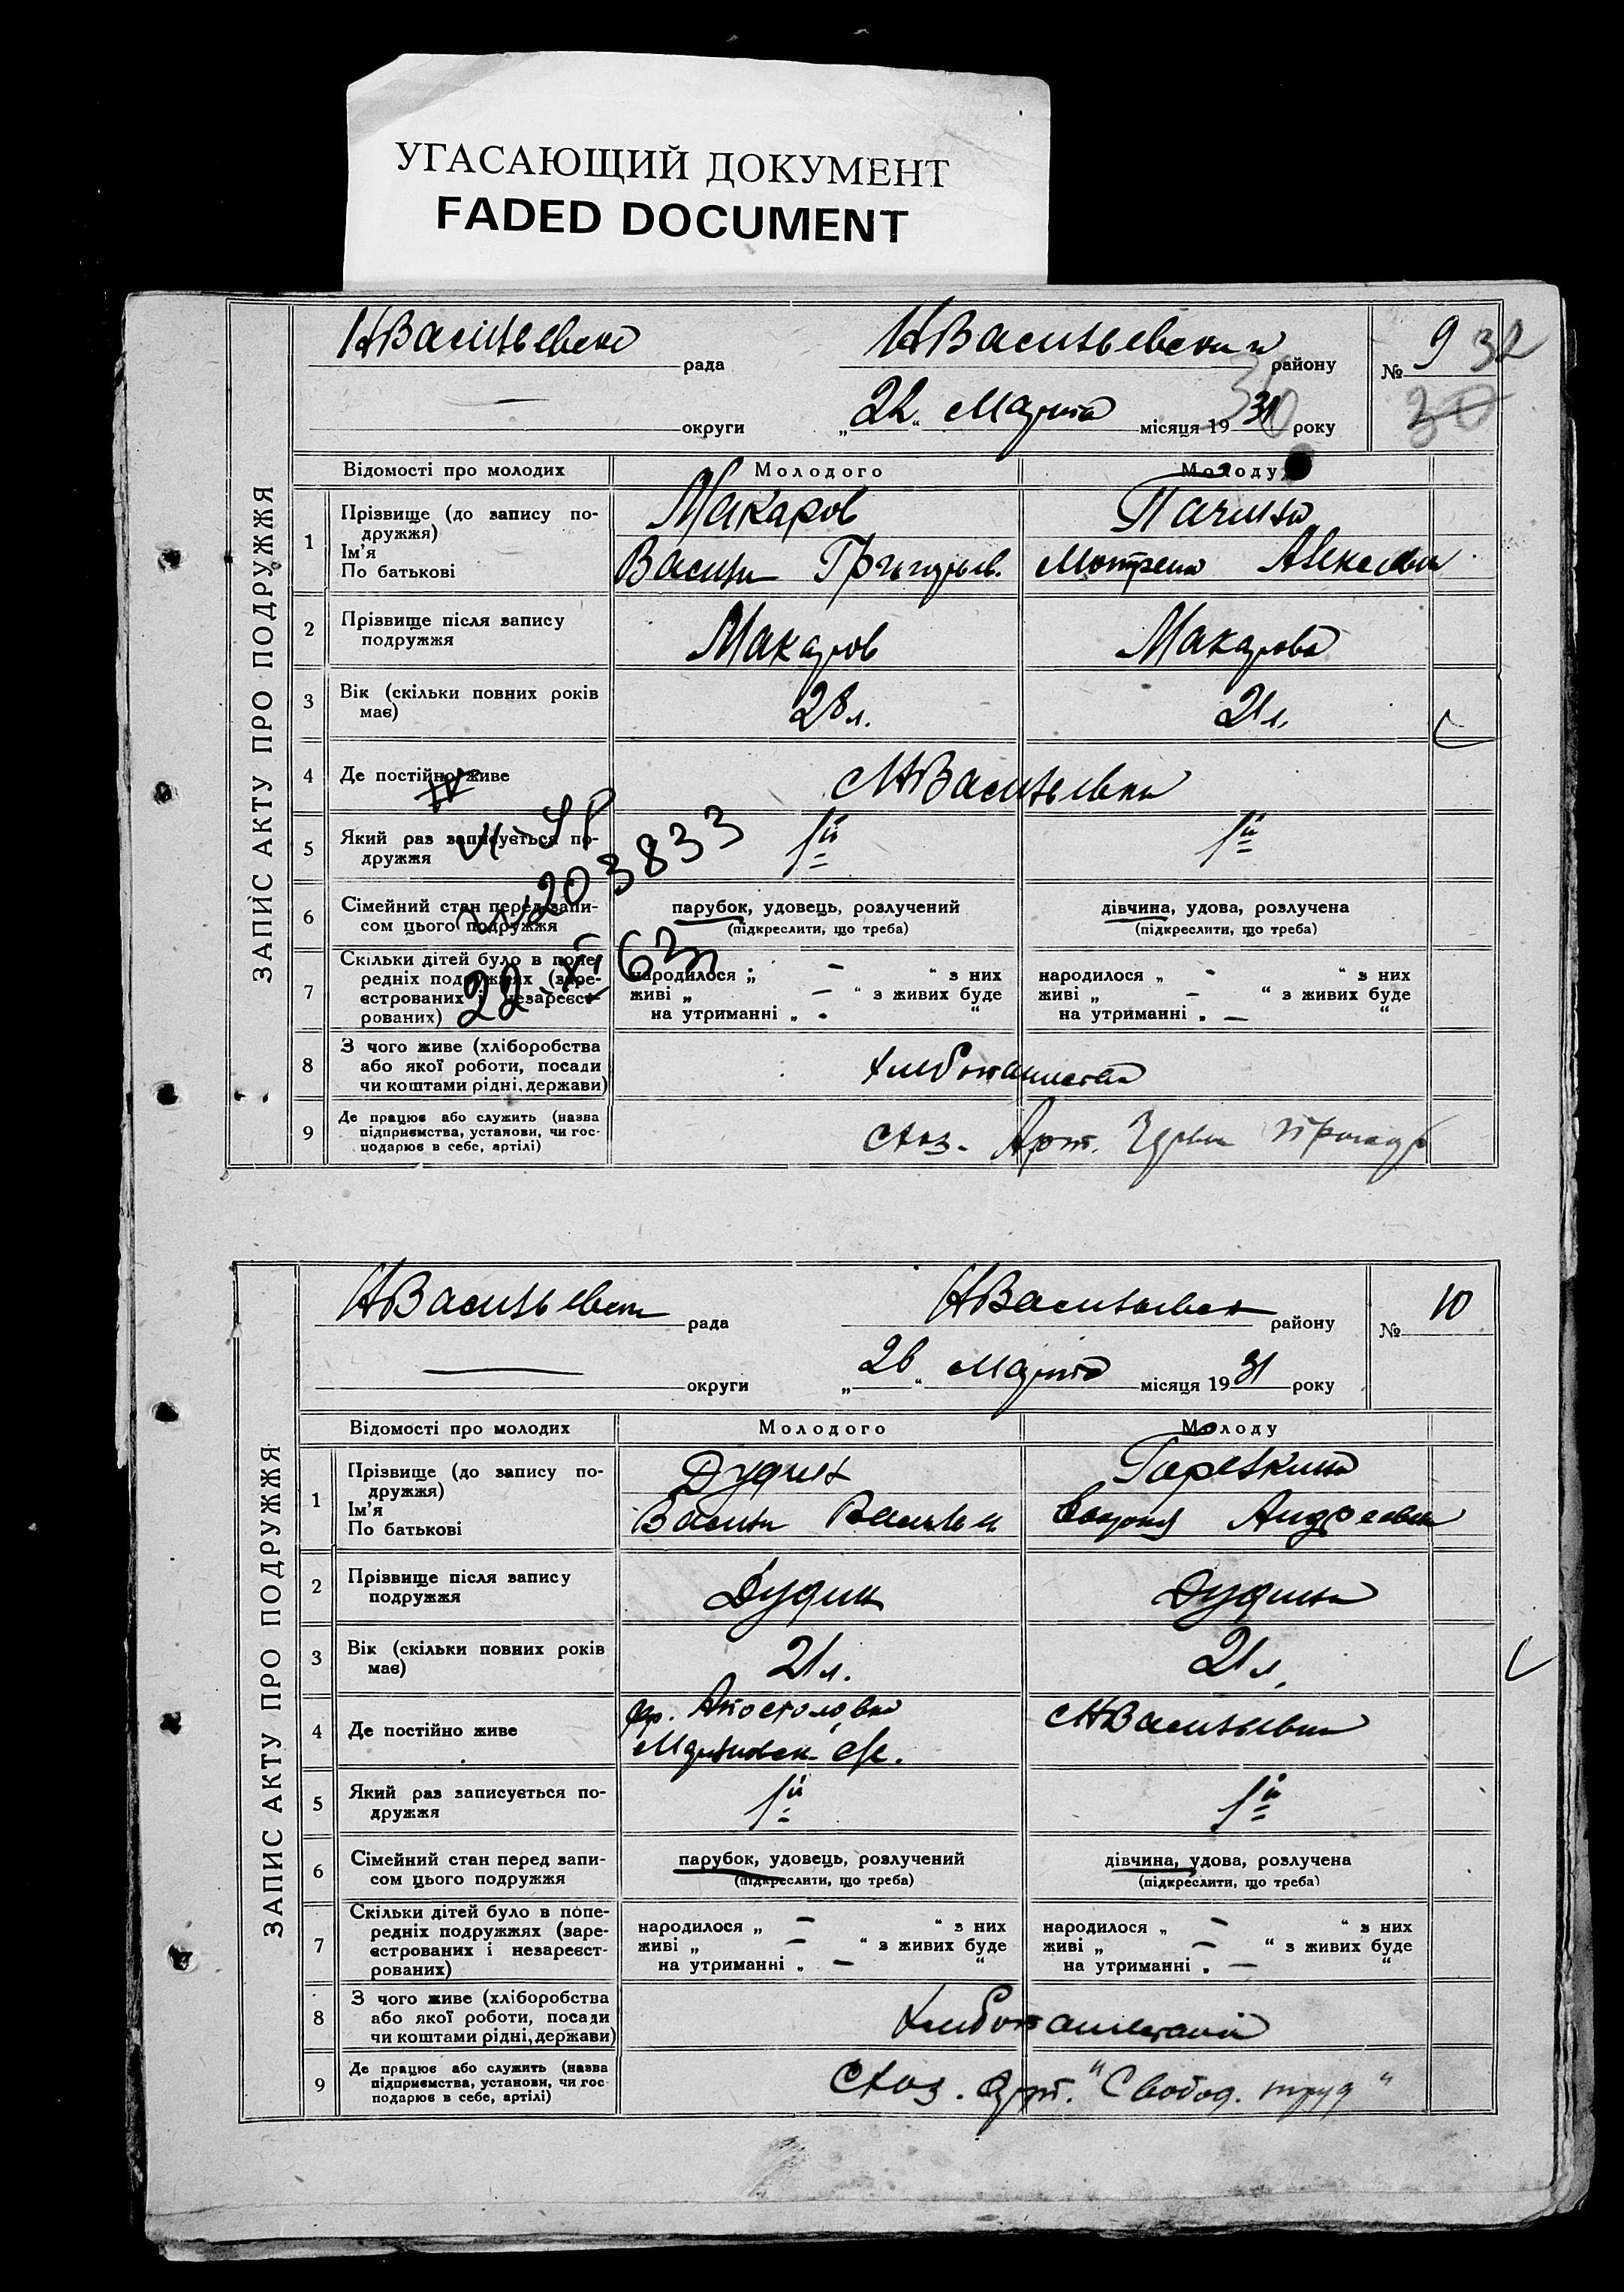 УГАСАЮЩИЙ ДОКУМЕНТ
FADED DOCUMENT
ЗАПИС АКТУ ПРО ПОДРУЖЖЯ
НВасильевска рада НВасильевский району № 9 32
округи „22“ Марта місяця 1931 року 30
Відомості про молодих Молодого Молоду
1 Прізвище (до запису по-
дружжя) Макаров
Ім'я
По батькові Васили Григорьев. Мотрена Алексеевна
2 Прізвище після запису
подружжя Макаров Макарова
3 Вік (скільки повних років
має) 28 л. 21 л.
4 Де постійно живе с НВасильевка
5 Який раз записується по-
дружжя 1й 1й
203833
6 Сімейний стан перед запи-
сом цього подружжя парубок, удовець, розлучений дівчина, удова, розлучена
(підкреслити, що треба) (підкреслити, що треба)
22 XI 63
7 Скільки дітей було в попе-
редніх подружжях (заре-
єстрованих і незареєст-
рованих)
народилося „ — “ з них народилося „ - “ з них
живі „ — “ з живих буде живі „ — “ з живих буде
на утриманні „ - “ на утриманні „ — “
8 З чого живе (хліборобства
або якої роботи, посади
чи коштами рідні, держави) хлебопашества
9 Де працює або служить (назва
підприємства, установи, чи гос-
подарює в себе, артілі) схоз. Арт.
ЗАПИС АКТУ ПРО ПОДРУЖЖЯ
НВасильевска рада НВасильевск району № 10
округи „26“ Марта місяця 1931 року
Відомості про молодих Молодого Молоду
1 Прізвище (до запису по-
дружжя) Дудин Горезкина
Ім'я
По батькові Васили Василье Андреевна
2 Прізвище після запису
подружжя Дудин Дудина
3 Вік (скільки повних років
має) 21 л. 21 л.
4 Де постійно живе Апостоловка с НВасильевка
5 Який раз записується по-
дружжя 1й 1й
6 Сімейний стан перед запи-
сом цього подружжя парубок, удовець, розлучений дівчина, удова, розлучена
(підкреслити, що треба) (підкреслити, що треба)
7 Скільки дітей було в попе-
редніх подружжях (заре-
єстрованих і незареєст-
рованих)
народилося „ — “ з них народилося „ — “ з них
живі „ — “ з живих буде живі „ — “ з живих буде
на утриманні „ — “ на утриманні „ — “
8 З чого живе (хліборобства
або якої роботи, посади
чи коштами рідні, держави) хлебопашеством
9 Де працює або служить (назва
підприємства, установи, чи гос-
подарює в себе, артілі) схоз. арт. "Свобод. труд"